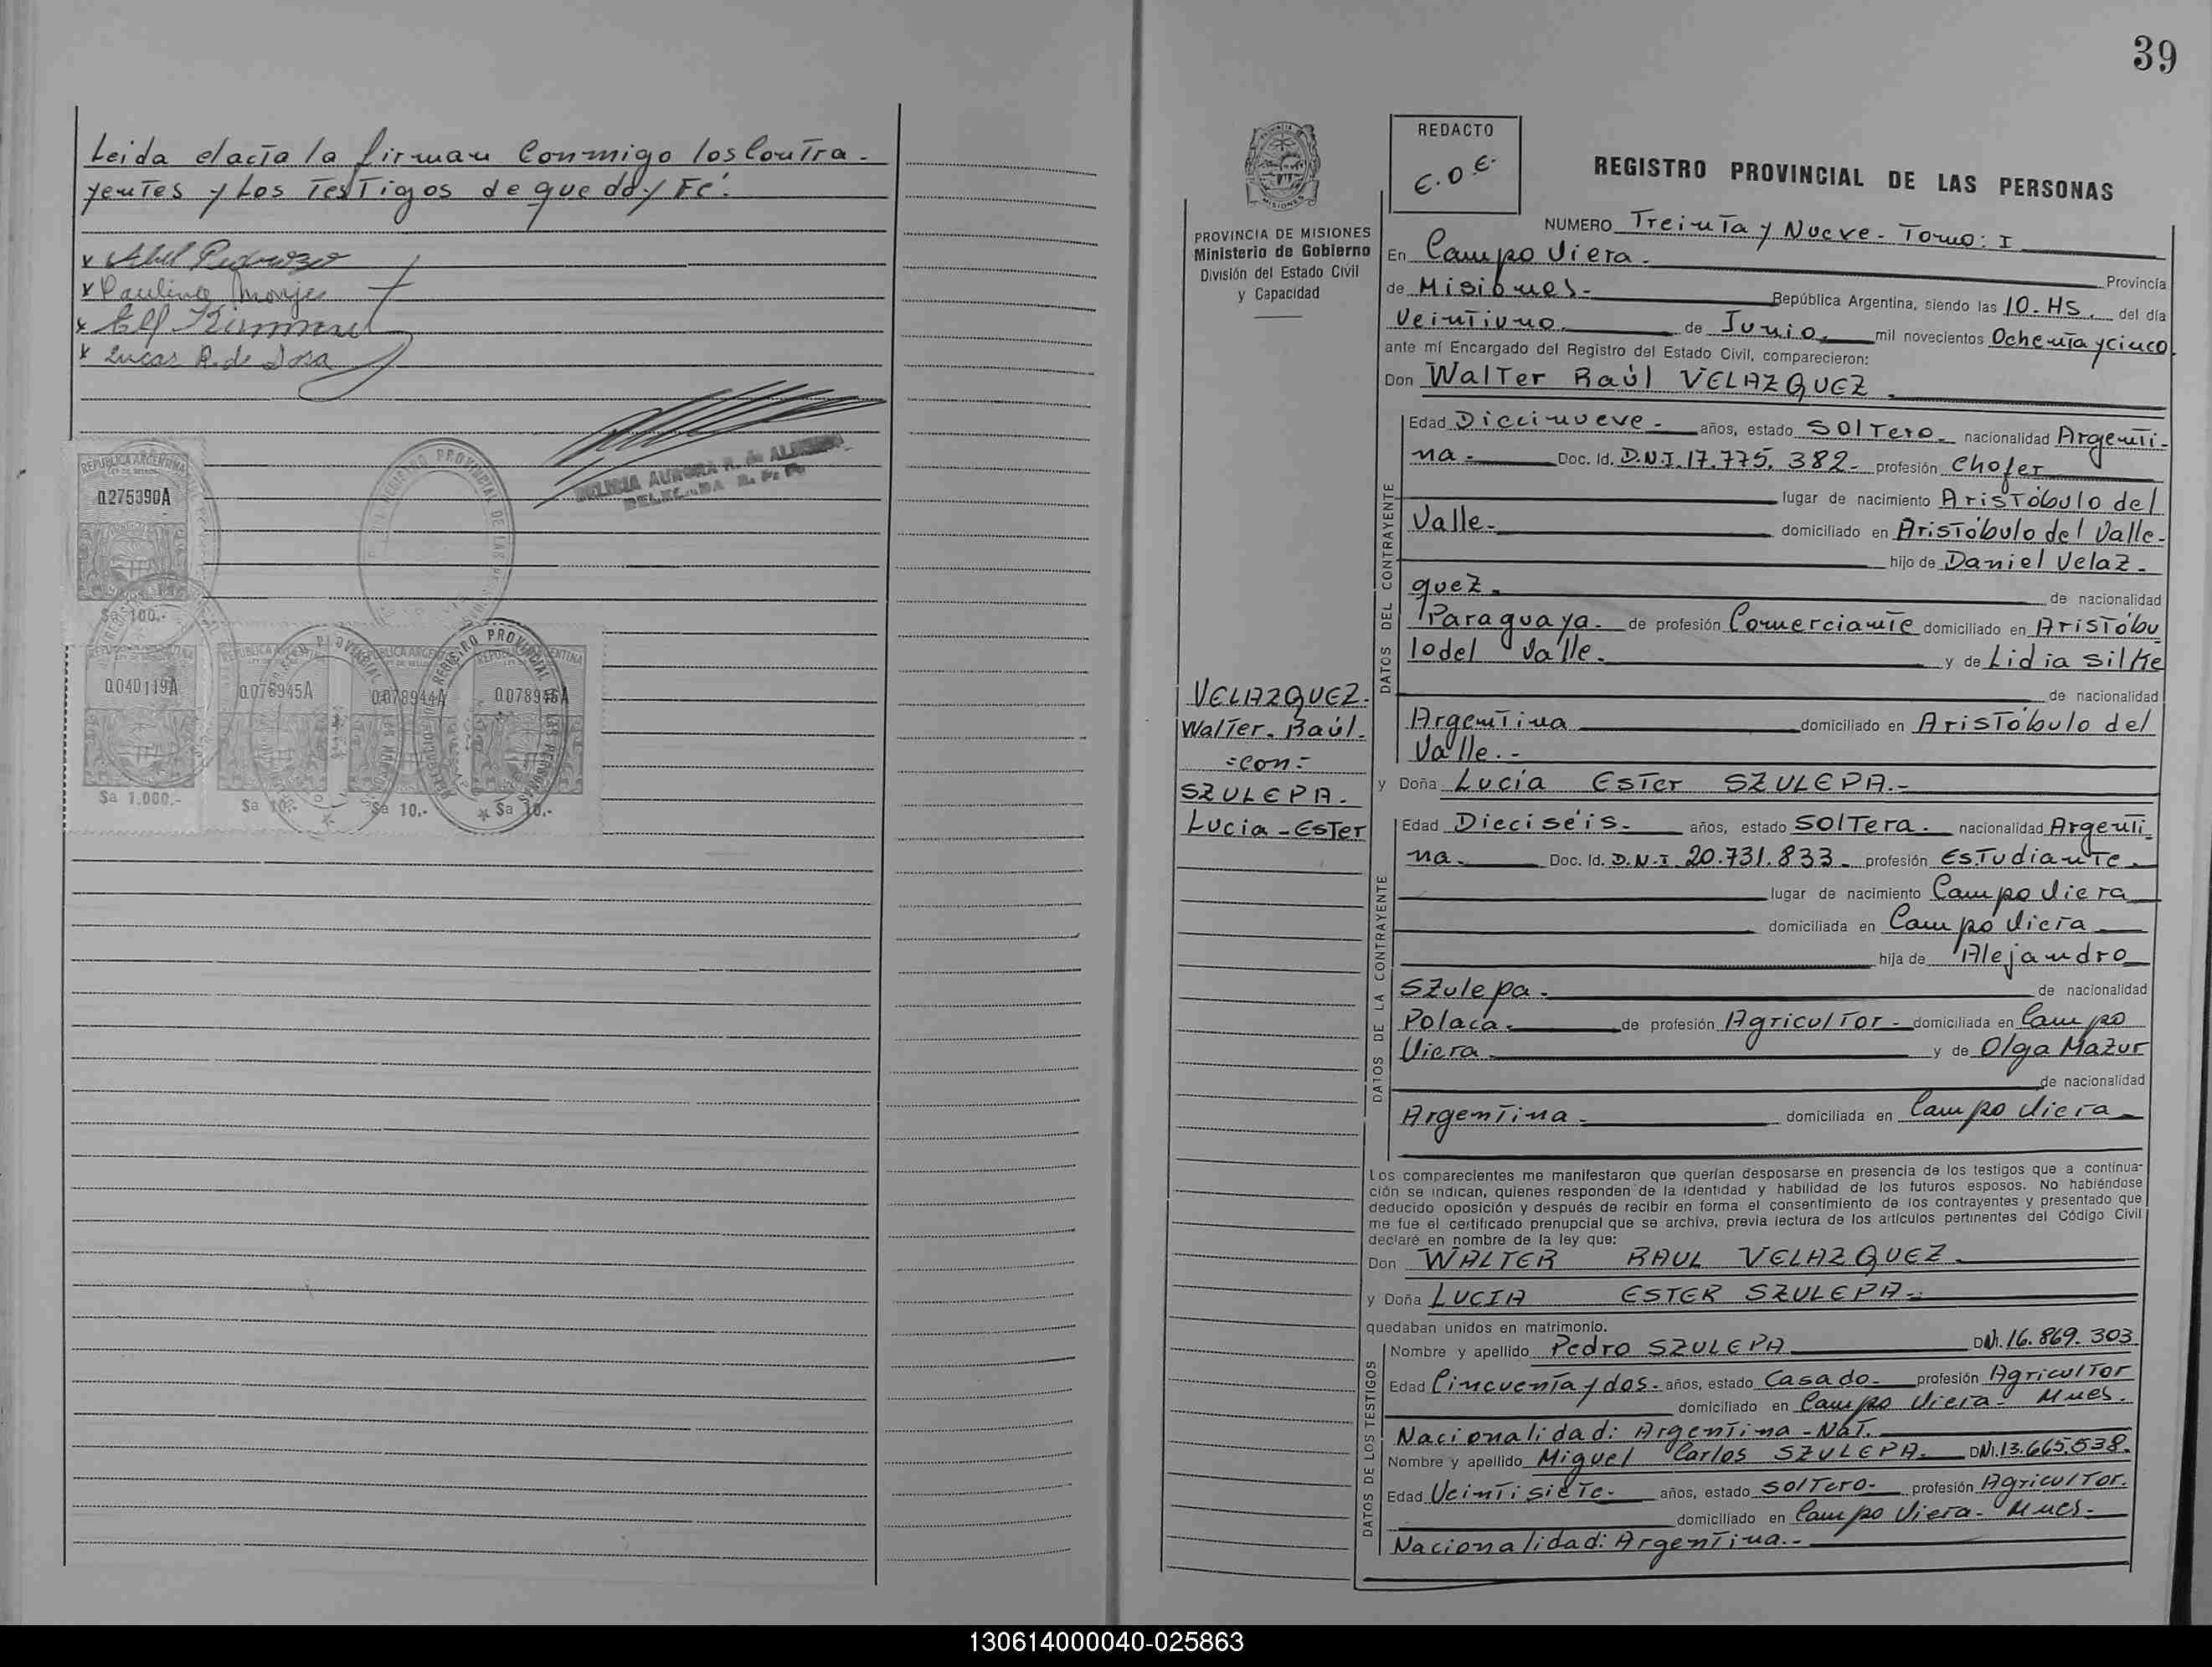 Leida el acta la firman Conmigo los Contra-
yentes y Los Testigos de que doy Fé.
x Abel Pedrozo
x Paulina Monjes
x
x Lucas R. de Sosa
DELICIA AURORA R. de
DELEGADA R. P. P.
REPUBLICA ARGENTINA
0.275390A
$a 100.-
0.040119A
0.078945A
0.078944A
0.078946A
$a 1.000,-
$a 10.-
$a 10,-
$a 10.-
REGISTRO PROVINCIAL DE LAS PERSONAS
39
REDACTO
E.O.E.
REGISTRO PROVINCIAL DE LAS PERSONAS
PROVINCIA DE MISIONES
Ministerio de Gobierno
División del Estado Civil
y Capacidad
NUMERO Treinta y Nueve - Tomo: I
En Campo Viera. Provincia
de Misiones- República Argentina, siendo las 10.HS. del día
Veintiuno. de Junio. mil novecientos Ochenta y cinco.
ante mí Encargado del Registro del Estado Civil, comparecieron:
Don Walter Raúl VELAZQUEZ.
DATOS DEL CONTRAYENTE
Edad Diecinueve- años, estado Soltero- nacionalidad Argenti-
na- Doc. Id. D.N.I. 17.775.382- profesión Chofer
lugar de nacimiento Aristóbulo del
Valle- domiciliado en Aristóbulo del Valle-
hijo de Daniel Velaz-
quez. de nacionalidad
Paraguaya. de profesión Comerciante domiciliado en Aristóbu
lo del Valle. y de Lidia Silke
de nacionalidad
Argentina domiciliado en Aristóbulo del
Valle.-
VELAZQUEZ-
Walter. Raúl.
=con=
SZULEPA.
Lucia-Ester
y Doña Lucia Ester SZULEPA.-
DATOS DE LA CONTRAYENTE
Edad Dieciséis- años, estado Soltera. nacionalidad Argenti-
na- Doc. Id. D.N.I 20.731.833- profesión Estudiante.
lugar de nacimiento Campo Viera
domiciliada en Campo Viera
hija de Alejandro
Szulepa. de nacionalidad
Polaca. de profesión Agricultor- domiciliada en Campo
Viera. y de Olga Mazur
de nacionalidad
Argentina- domiciliada en Campo Viera-
Los comparecientes me manifestaron que querían desposarse en presencia de los testigos que a continua-
ción se indican, quienes responden de la identidad y habilidad de los futuros esposos. No habiéndose
deducido oposición y después de recibir en forma el consentimiento de los contrayentes y presentado que
me fue el certificado prenupcial que se archiva, previa lectura de los artículos pertinentes del Código Civil
declaré en nombre de la ley que:
Don WALTER RAUL VELAZQUEZ.
y Doña LUCIA ESTER SZULEPA.-
quedaban unidos en matrimonio.
DATOS DE LOS TESTIGOS
Nombre y apellido Pedro SZULEPA DNI.16.869.303
Edad Cincuenta y dos- años, estado Casado- profesión Agricultor
domiciliado en Campo Viera- Mnes.
Nacionalidad: Argentina-Nat.
Nombre y apellido Miguel Carlos SZULEPA. DNI.13.665.538.
Edad Veintisiete- años, estado Soltero- profesión Agricultor.
domiciliado en Campo Viera- Mnes-
Nacionalidad: Argentina.-
130614000040-025863